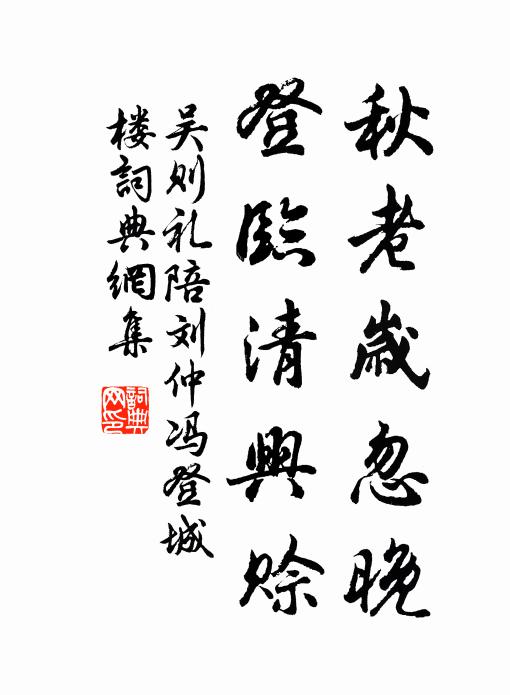 秋老歲忽晚
登臨清興賒
吴则礼陪刘仲冯登城
楼詞典網集
詞典
网印